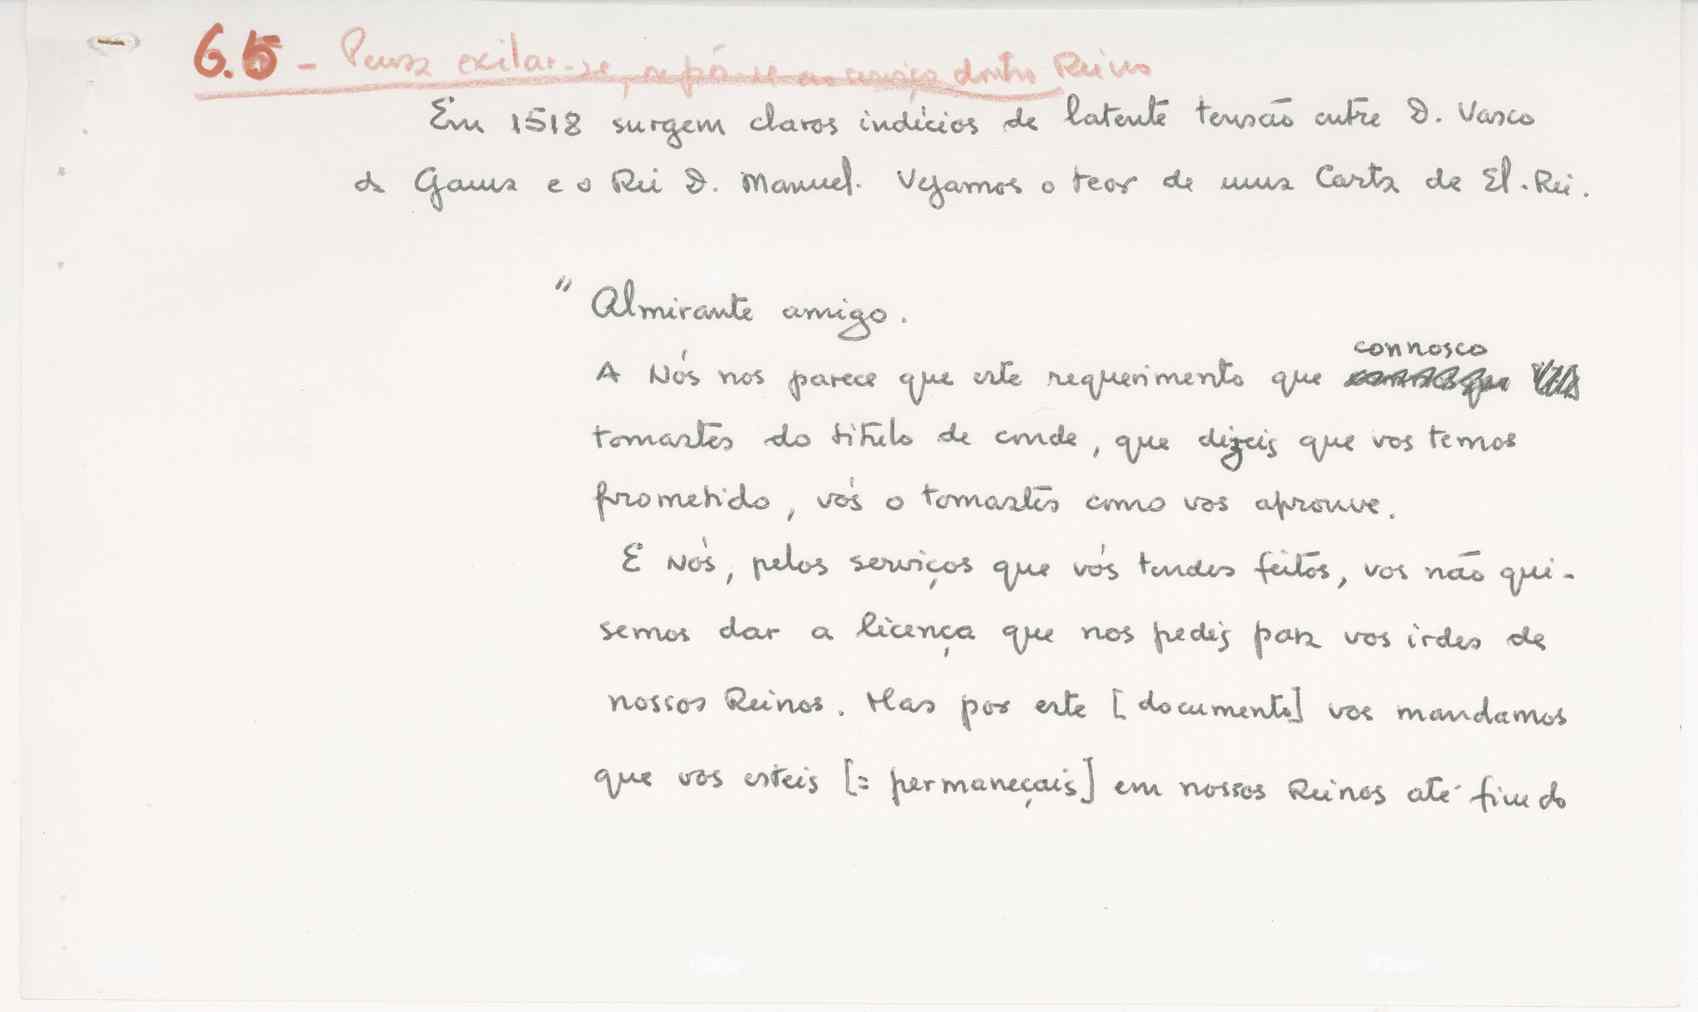 6.5 - Pensa exilar-se, e põe-se ao serviço doutro Reino
Em 1518 surgem claros indícios de latente tensão entre D. Vasco
da Gama e o Rei D. Manuel. Vejamos o teor de uma Carta de El-Rei.
" Almirante amigo.
connosco
A Nós nos parece que este requerimento que
tomastes do título de conde, que dizeis que vos temos
prometido, vós o tomastes como vos aprouve.
E Nós, pelos serviços que vós tendes feitos, vos não qui-
semos dar a licença que nos pedis para vos irdes de
nossos Reinos. Mas por este [documento] vos mandamos
que vos esteis [= permaneçais] em nossos Reinos até fim do